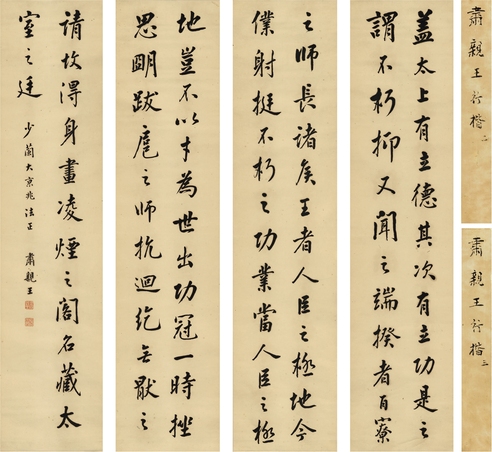 盖太上有立德其次有立功是之
謂不朽抑又闻之端揆者百寮
之師長諸矦王者人臣之極地今
僕射挺不朽之功業當人臣之極
地豈不以才為世出功冠一時挫
思眀跋扈之师抗迴纥無猒之
請故得身畫凌煙之阁名藏太
室之廷
少蘭大京兆法正
肅親王
肅親王行楷二
肅親王行楷三